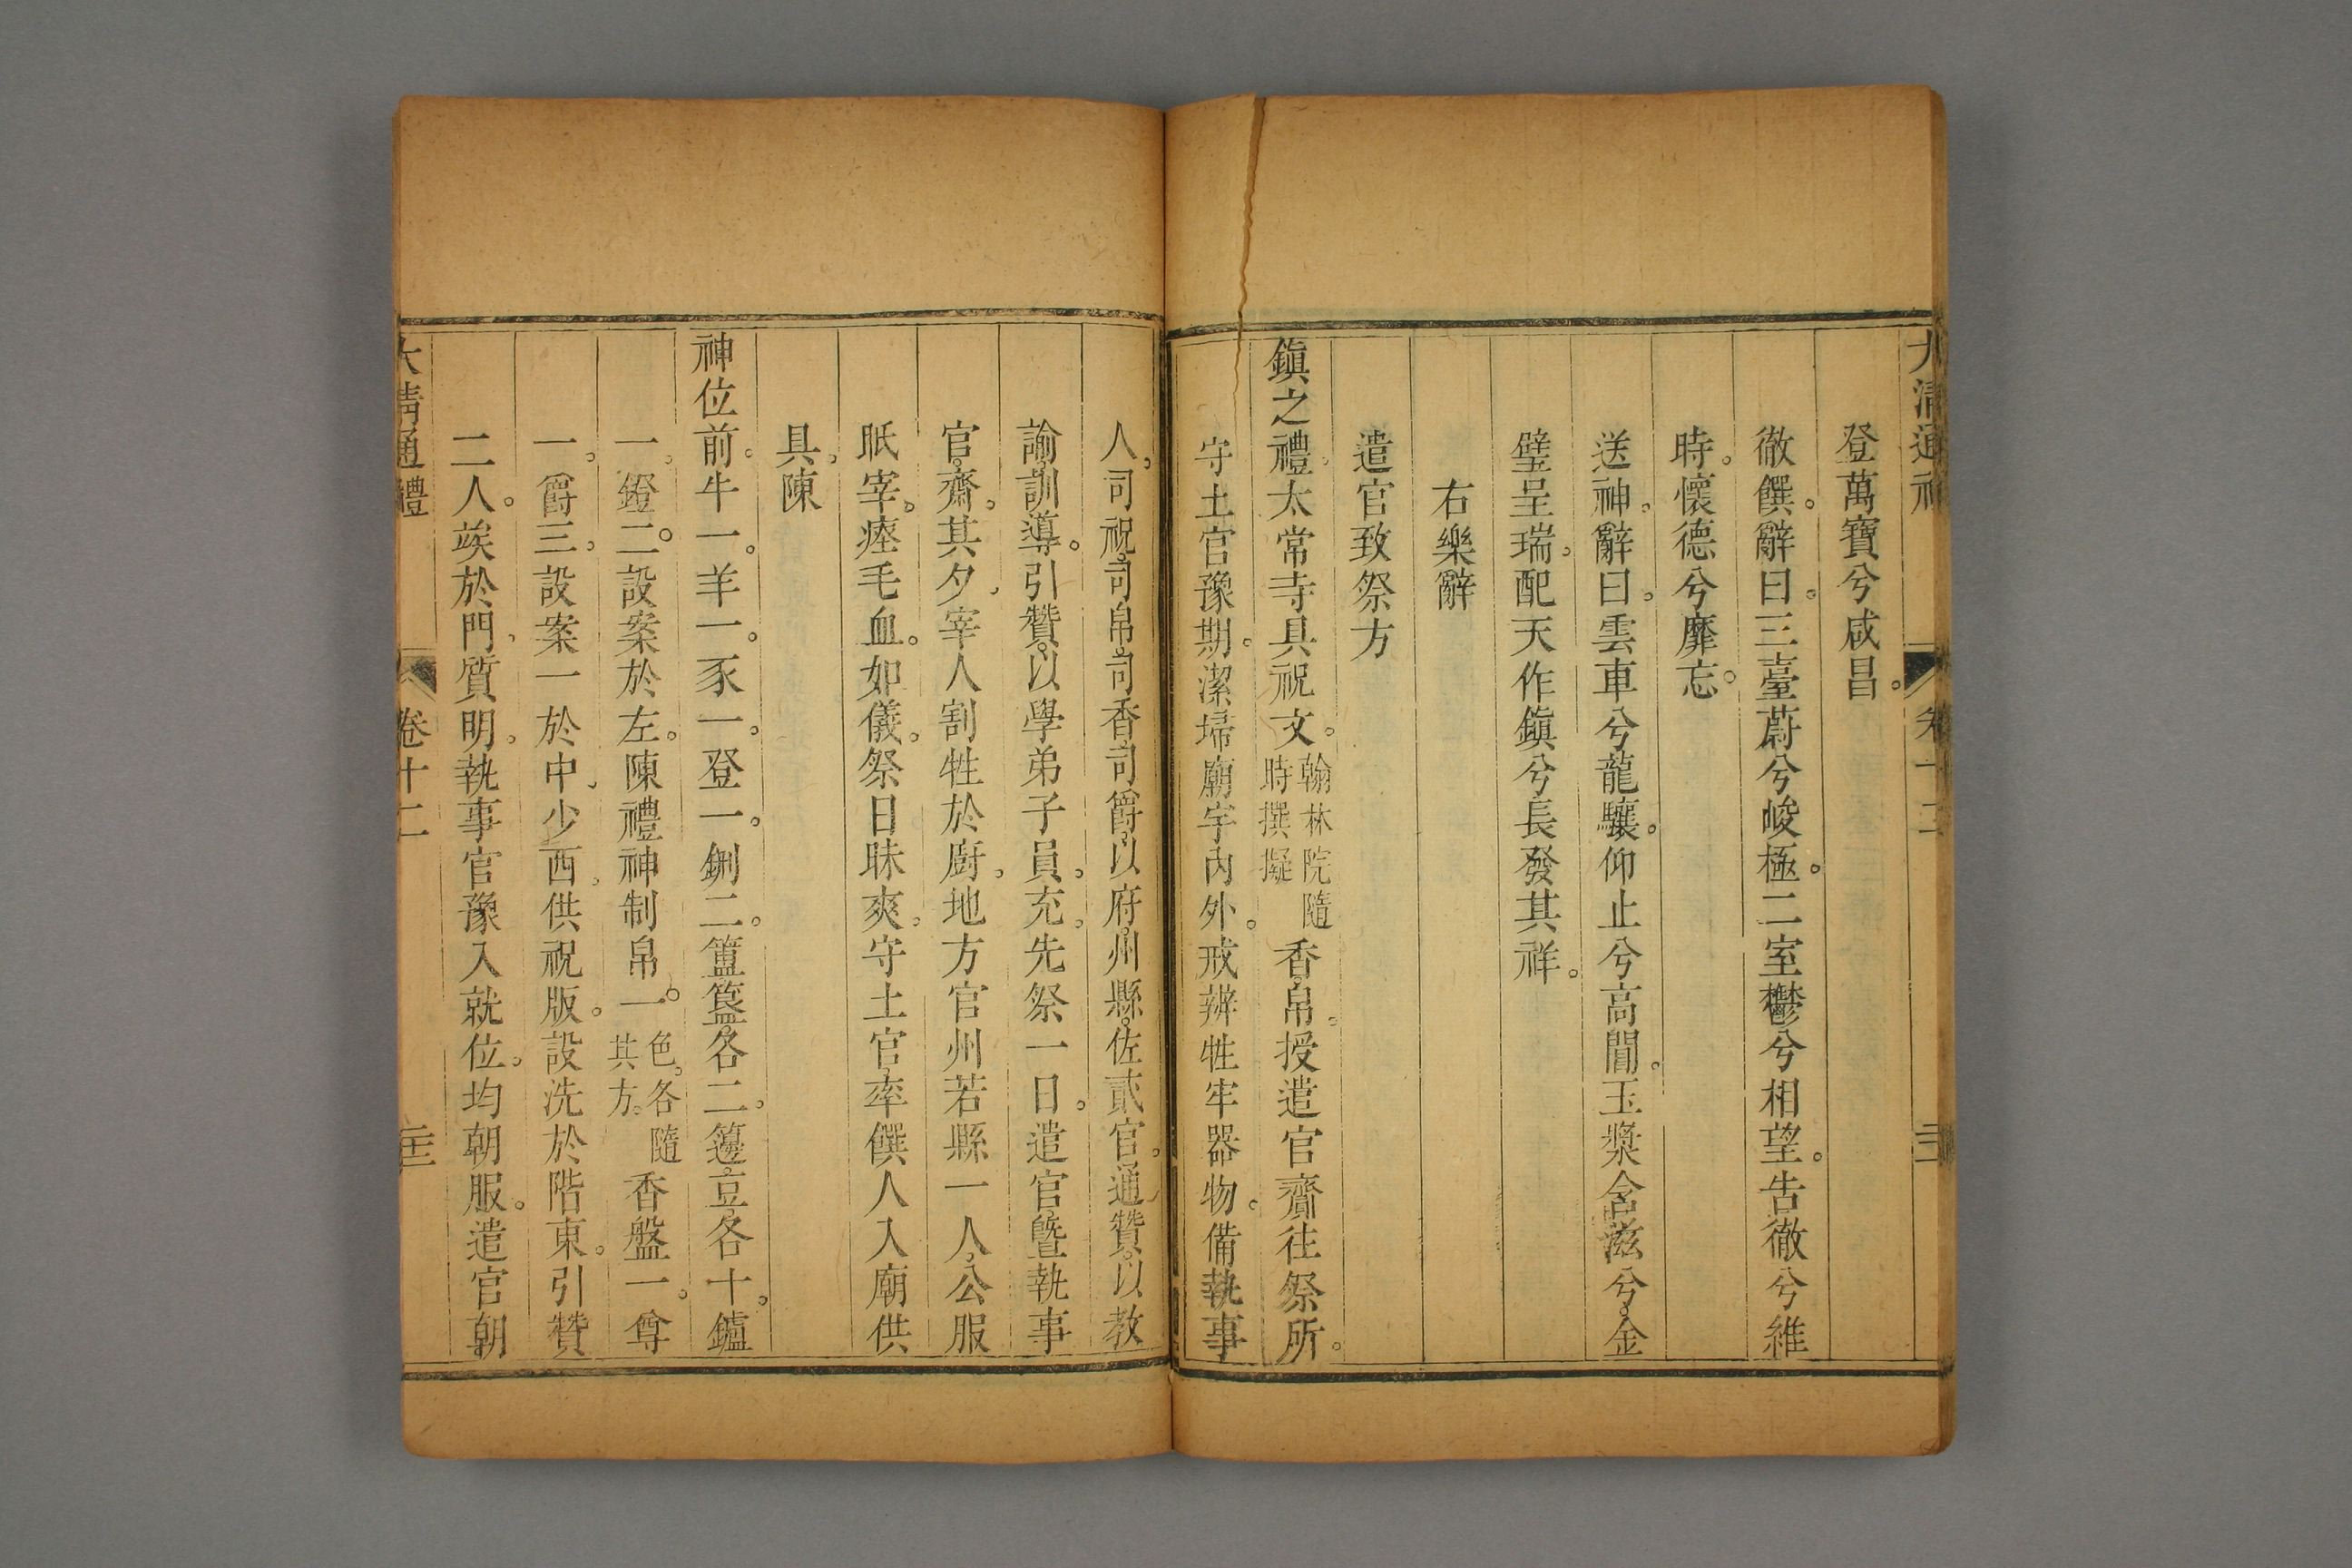 大清通禮 卷十二
登萬寶兮咸昌。
徹饌。辭曰。三臺蔚兮峻極。二室鬱兮相望。告徹兮維
時。懷德兮靡忘。
送神。辭曰。雲車兮龍驤。仰止兮高閶。玉漿含滋兮。金
璧呈瑞。配天作鎭兮長發其祥。
右樂辭
遣官致祭方
鎭之禮。太常寺具祝文。翰林院隨時撰擬香帛。授遣官齎往祭所。
守土官豫期。潔埽廟宇內外。戒辨牲牢器物。備執事
人。司祝。司帛。司香。司爵。以府。州縣。佐貳官。通贊。以教
諭。訓導。引贊。以學弟子員。充。先祭一日。遣官曁執事
官。齋。其夕。宰人割牲於廚。地方官州若縣一人。公服
眡宰。瘞毛血。如儀。祭日昧爽。守土官。率饌人入廟供
具。陳
神位前。牛一。羊一。豕一。登一。鉶二。簠簋。各二。籩豆。各十。鑪
一。鐙二。設案於左。陳禮神制帛一。色。各隨其方。香盤一。尊
一。爵三。設案一於中。少西。供祝版。設洗於階東。引贊
二人。竢於門。質明。執事官豫入就位。均朝服。遣官朝
大清通禮 卷十二